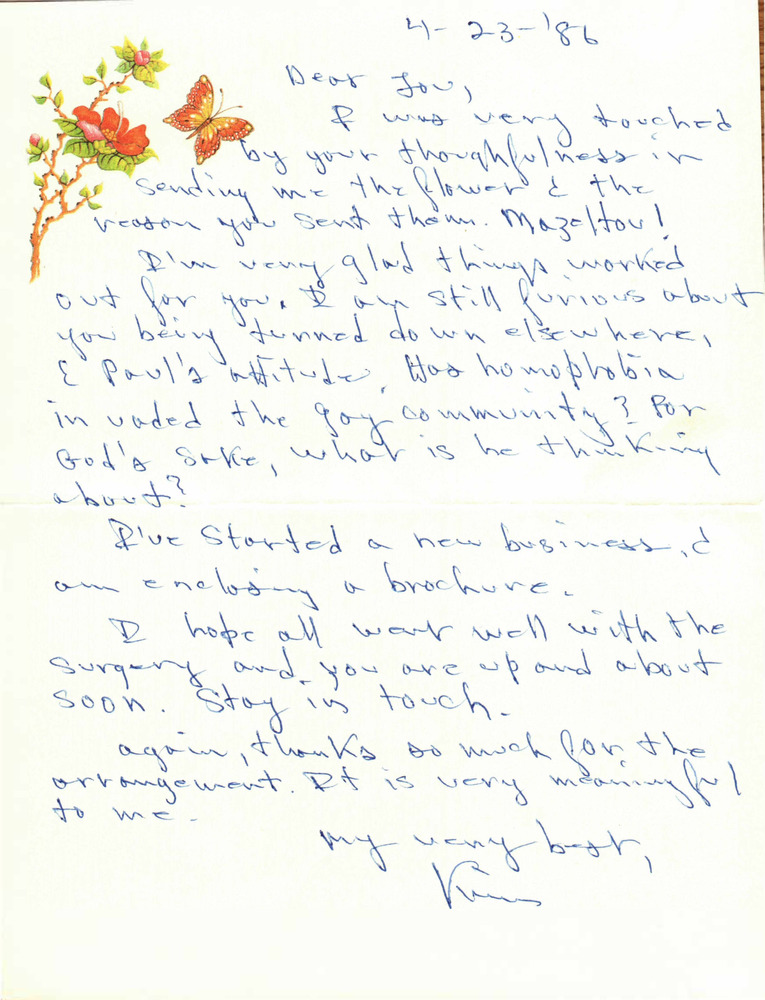 4-23-'86
Dear Lou,
I was very touched
by your thoughfulness in
sending me the flower & the
reason you sent them. Mazeltov!
I'm very glad things worked
out for you. I am still furious about
you being turned down elsewhere,
& Paul's attitude. Has homophobia
invaded the gay community? For
God's sake, what is he thinking
about?
I've started a new business, &
am enclosing a brochure.
I hope all went well with the
surgery and you are up and about
soon. Stay in touch.
again, thanks so much for the
arrangement. It is very meaningful
to me.
My very best,